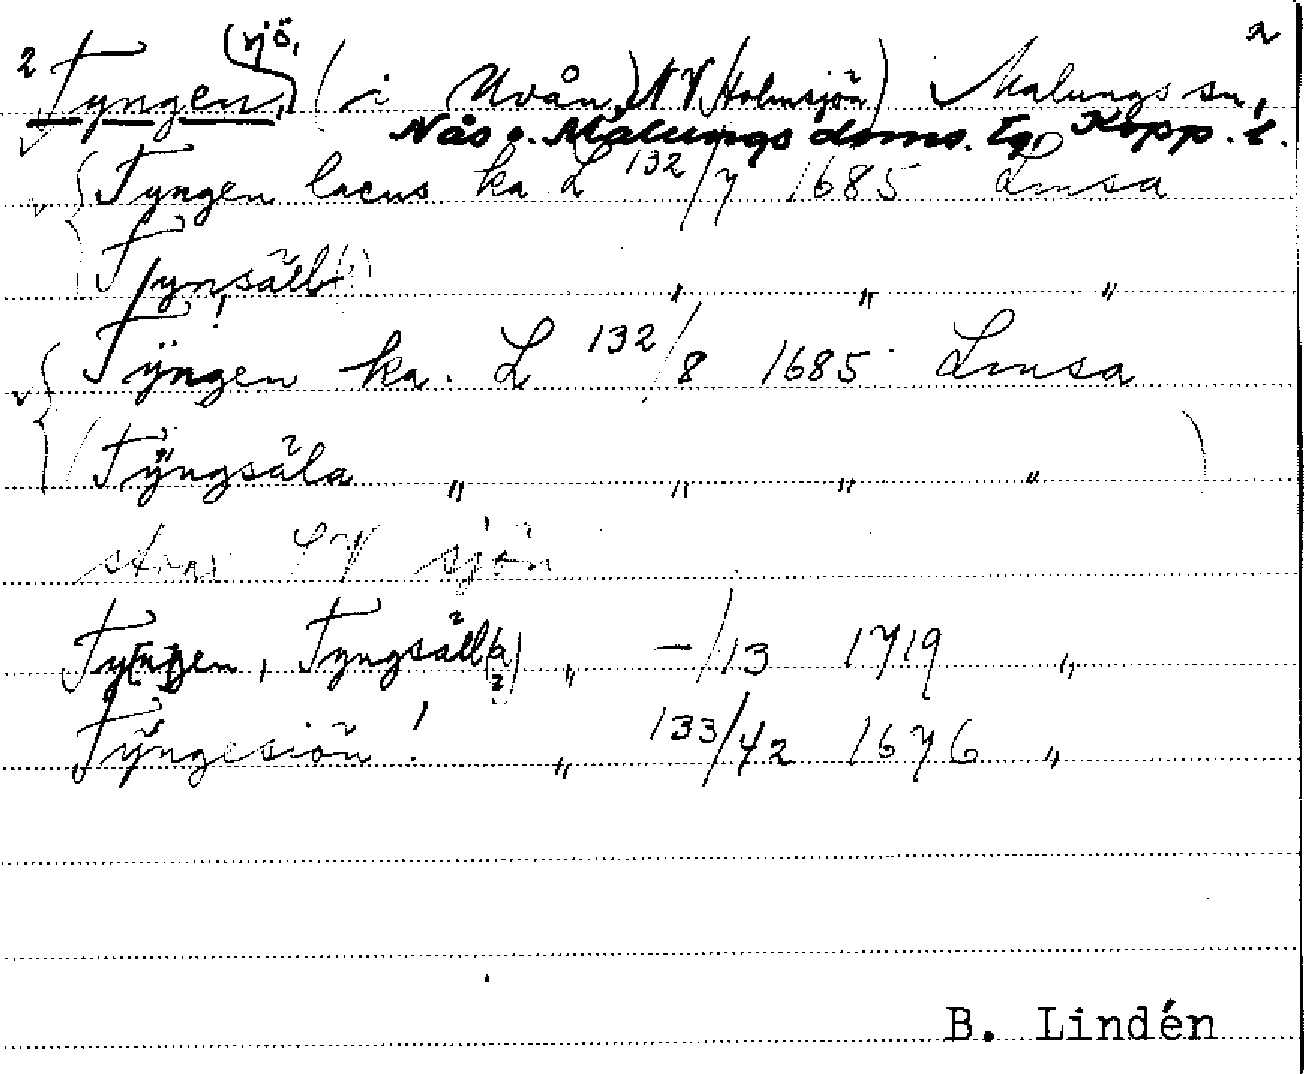 2 Tyngen, (sjö, (i Uvån, NV Holmsjön) Malungs sn, a
Nås o. Malungs doms. tg, Kopp. l.
{ Tyngen lacus ka L 132/7 1685 Lmsa
Tynsäll " " "
{ Tÿngen ka. L 132/8 1685 Lmsa
(Tÿngsäla " " " " )
stor SV sjön
Ty[n]gen, Tyngsäll " –/13 1719 "
Tÿngesiön! " 133/42 1676 "
B. Lindén